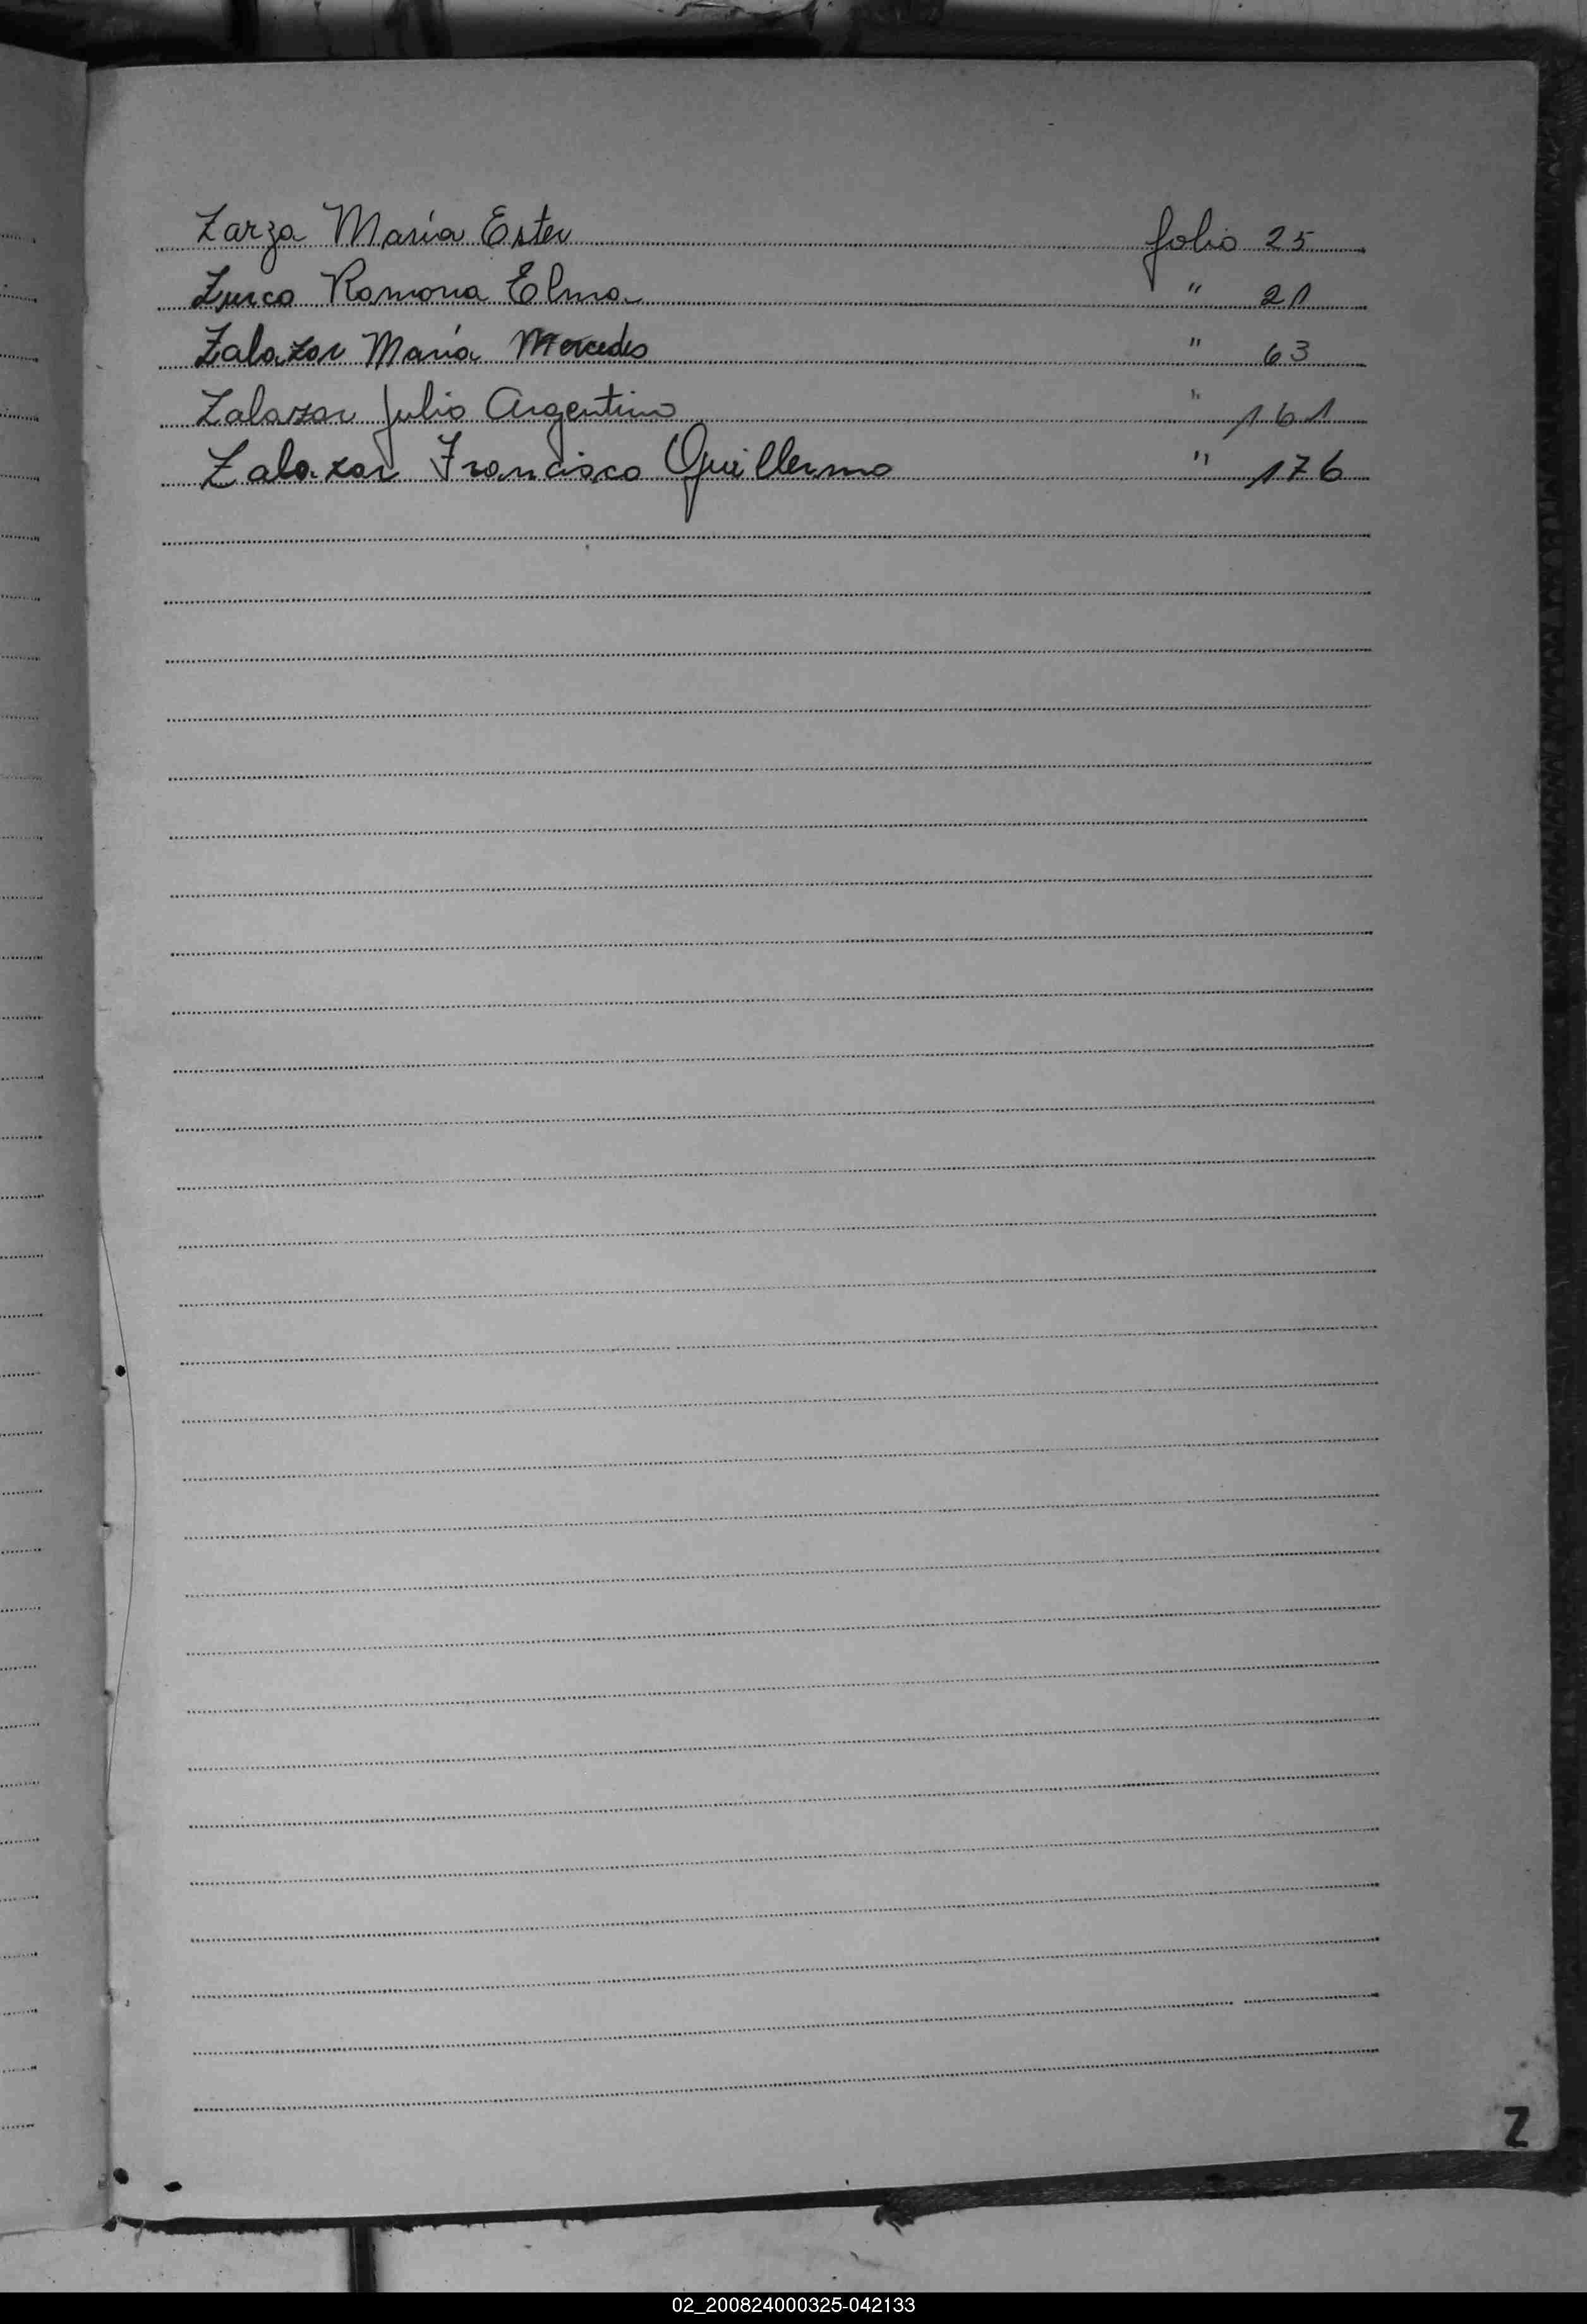 Zarza María Ester folio 25
Zurco Ramona Elma " 21
Zalazar María Mercedes " 63
Zalazar Julio Argentino " 161
Zalazar Francisco Guillermo " 176
Z
02_200824000325-042133